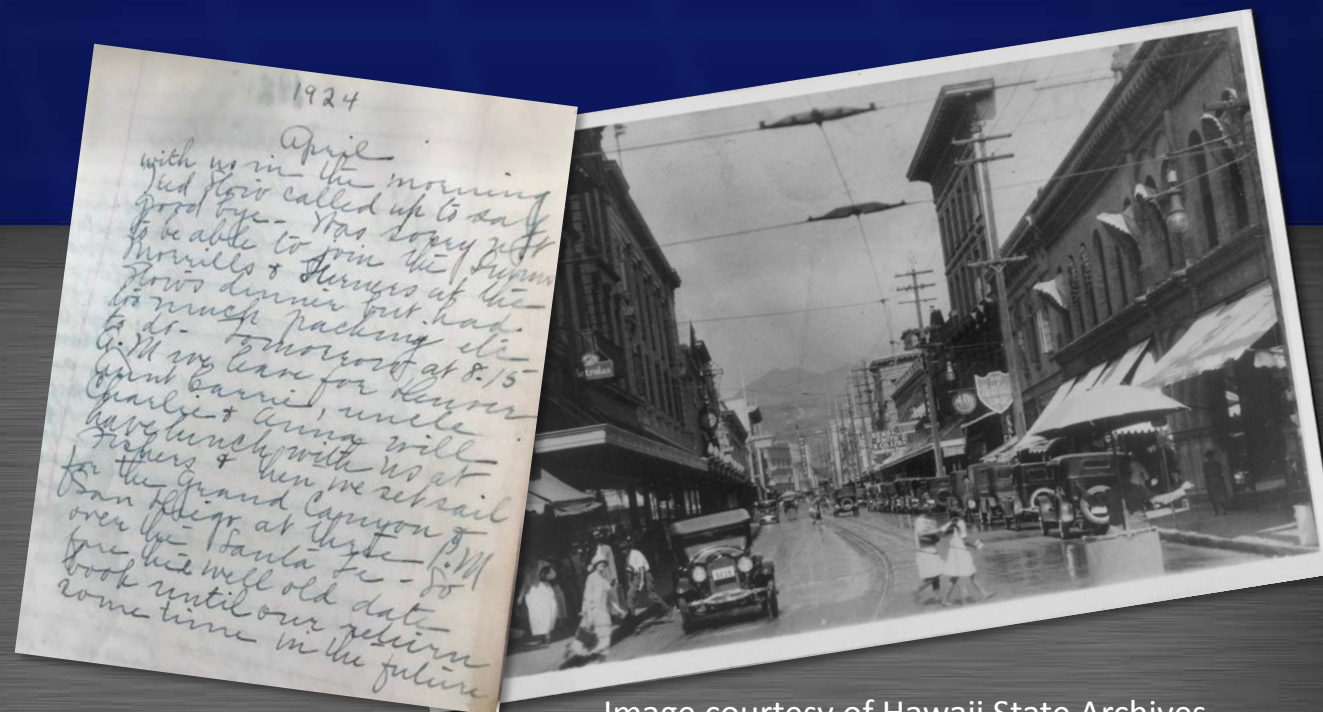 1924
April
with us in the morning
good bye - Was sorry not
to be able to join the
Morrills & Turners at the
dinner but had
too much packing etc
to do - Tomorrow at 8.15
A.M we leave for Denver
Aunt Carrie, uncle
Charlie & Anna will
have lunch with us at
Fishers & then we set sail
for the Grand Canyon &
San Diego at three P.M
over the Santa Fe - So
fare thee well old date
book until our return
some time in the future
Image courtesy of Hawaii State Archives